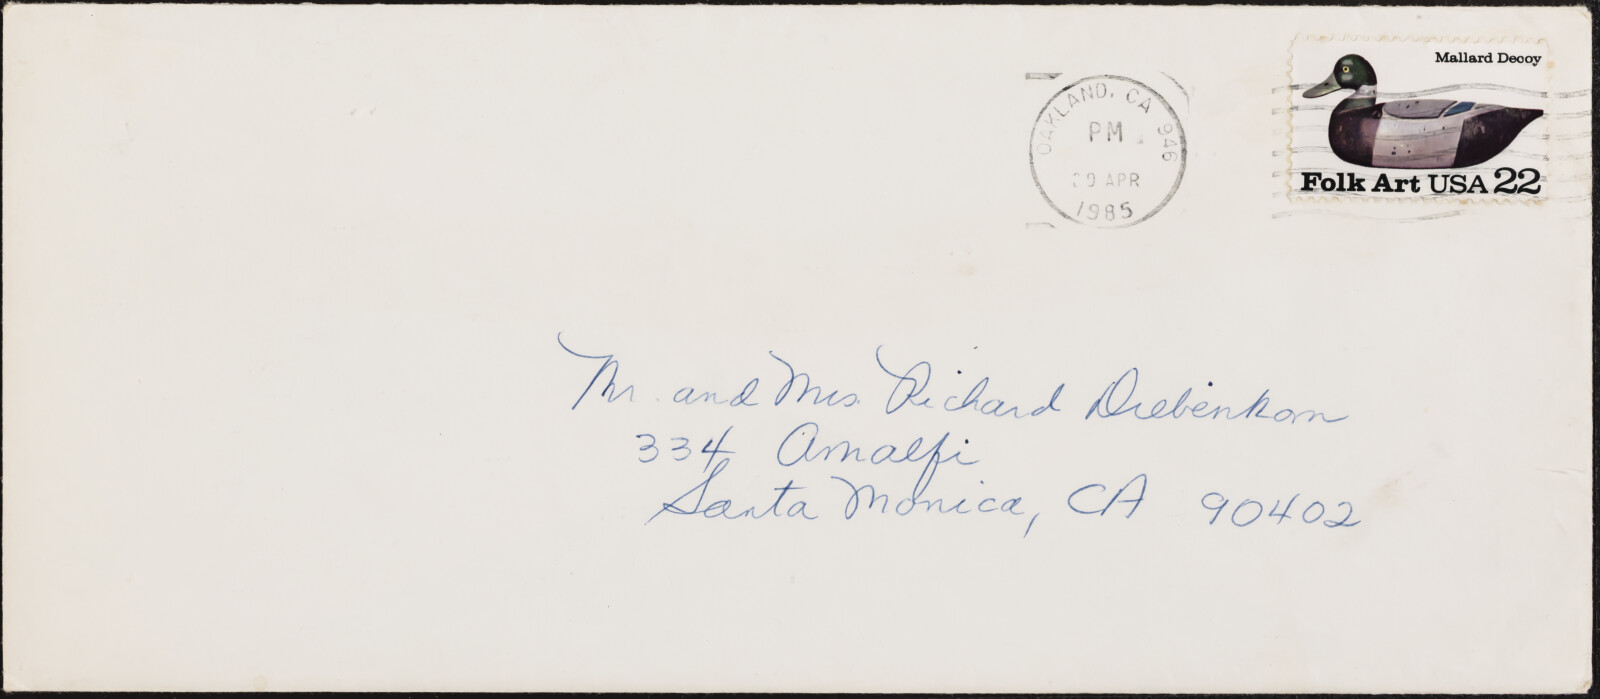 Mallard Decoy
OAKLAND, CA 946
PM
APR
1985
Folk Art USA 22
Mr. and Mrs. Richard Diebenkorn
334 Amalfi
Santa Monica, CA 90402